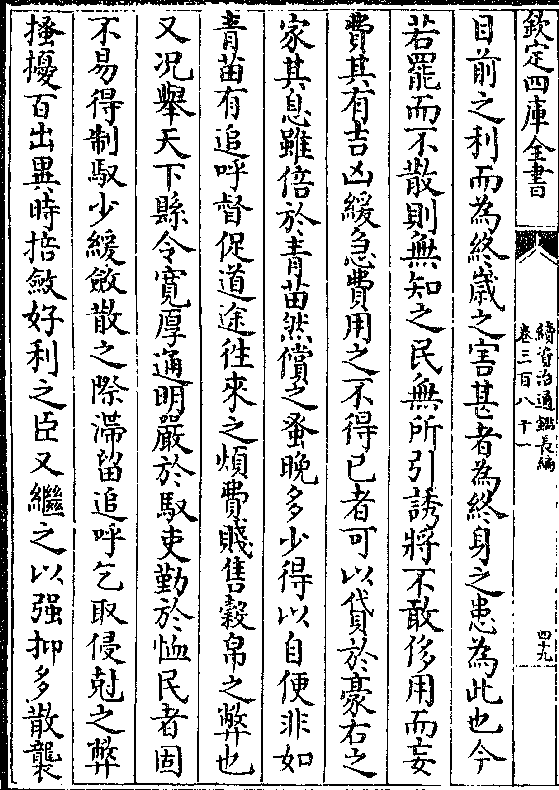 欽定四庫全書
續資治通鑑長編
卷三百八十一
四十九
目前之利而為終歲之害甚者為終身之患為此也今
若罷而不散則無知之民無所引誘將不敢侈用而妄
費其有吉凶緩急費用之不得已者可以貸於豪右之
家其息雖倍於青苗然償之蚤晚多少得以自便非如
青苗有追呼督促道途徃來之煩費賤售穀帛之弊也
又况舉天下縣令寛厚通明嚴於馭吏勤於恤民者固
不易得制馭少緩斂散之際滯留追呼乞取侵尅之弊
搔擾百出異時掊斂好利之臣又繼之以强抑多散襲